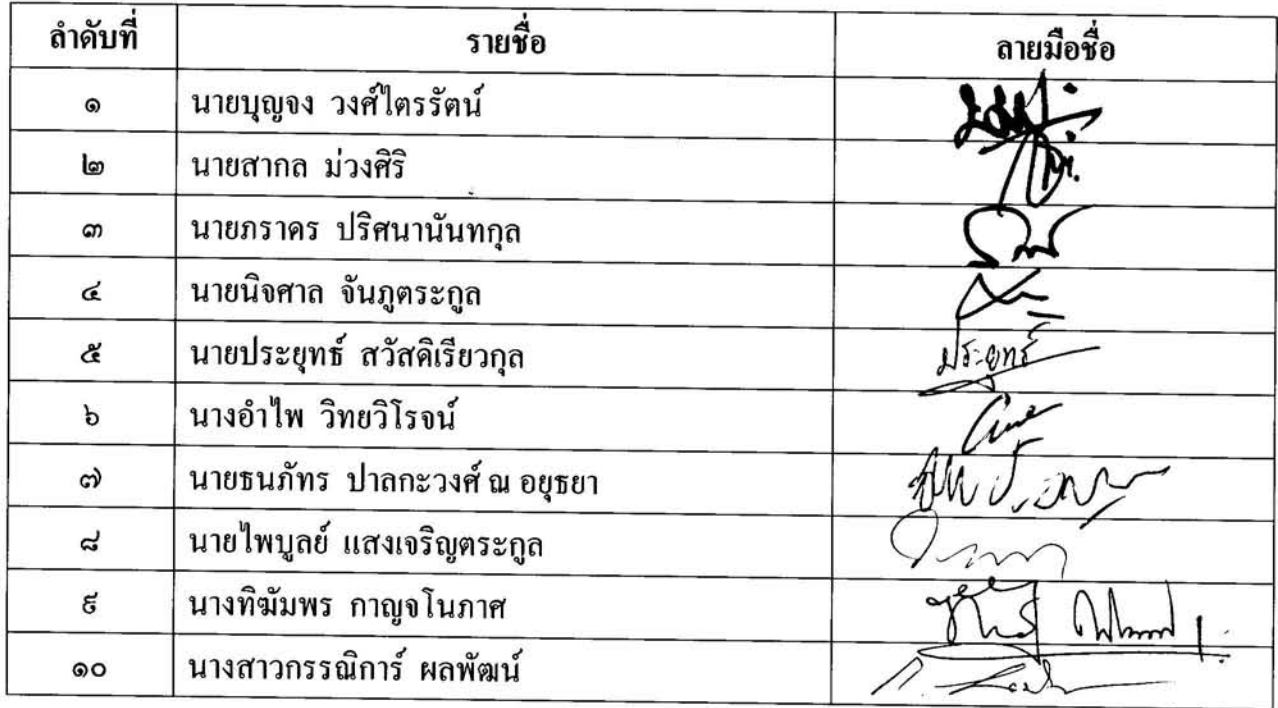 ลำดับที่ รายชื่อ ลายมือชื่อ
๑ นายบุญจง วงศ์ไตรรัตน์
๒ นายสากล ม่วงศิริ
๓ นายภราดร ปริศนานันทกุล
๔ นายนิจศาล จันภูตระกูล
๕ นายประยุทธ์ สวัสดิเรียวกุล ประยุทธ์
๖ นางอำไพ วิทยวิโรจน์
๗ นายธนภัทร ปาลกะวงศ์ ณ อยุธยา
๘ นายไพบูลย์ แสงเจริญตระกูล
๙ นางทิฆัมพร กาญจโนภาศ
๑๐ นางสาวกรรณิการ์ ผลพัฒน์